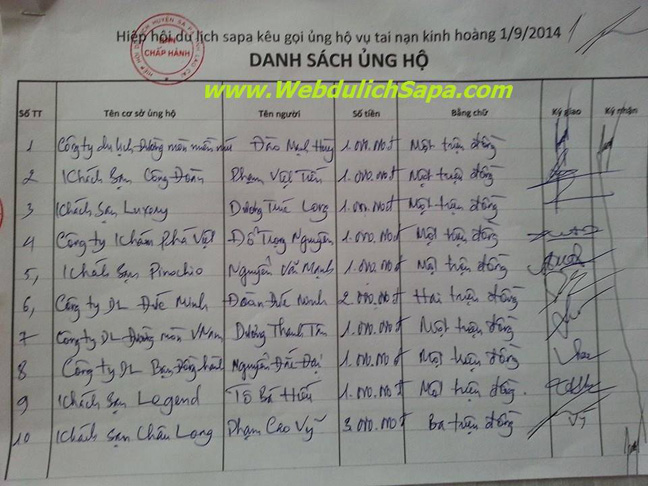 Hiệp hội du lịch sapa kêu gọi ủng hộ vụ tai nạn kinh hoàng 1/9/2014
CHẤP HÀNH
DANH SÁCH ỦNG HỘ
www.WebdulichSapa.com
Số TT Tên cơ sở ủng hộ Tên người Số tiền Bằng chữ Ký giao Ký nhận
1 Công ty du lịch Đường mòn Đào Mạnh 1.000.000đ Một triệu đồng
2 Khách sạn Công Đoàn Phạm Việt Tiến 1.000.000đ Một triệu đồng
3 Khách sạn Luxury Dương Long 1.000.000đ Một triệu đồng
4 Công ty Khám Phá Việt Đỗ Trọng Nguyên 1.000.000đ Một triệu đồng
5, Khách sạn Pinochio Nguyễn Văn Mạnh 1.000.000đ Một triệu đồng
6, Công ty DL Đức Minh Đoàn Đức Minh 2.000.000đ Hai triệu đồng
7 Công ty DL Đường mòn Dương Thanh 1.000.000đ Một triệu đồng
8 Công ty DL Bạn Đồng hành Nguyễn Đắc Đại 1.000.000đ Một triệu đồng
9 Khách sạn Legend Tô Bá Hiếu 1.000.000đ Một triệu đồng.
10 Khách sạn Châu Long Phạm Cao Vỹ 3.000.000đ Ba triệu đồng Vỹ